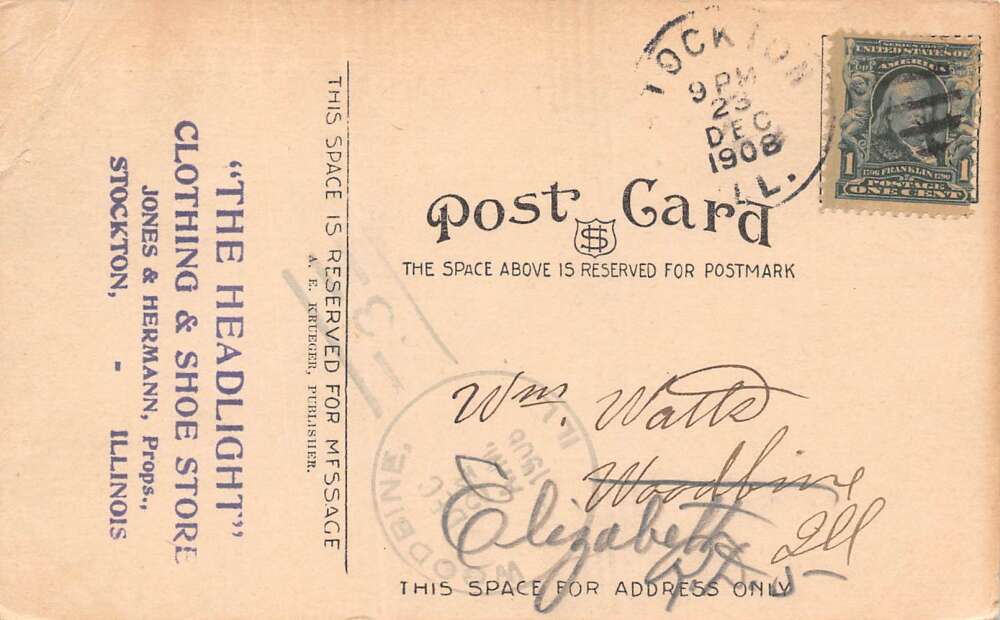 "THE HEADLIGHT"
CLOTHING & SHOE STORE
JONES & HERMANN, Props.,
STOCKTON, - ILLINOIS
THIS SPACE IS RESERVED FOR MESSAGE
A. E. KRUEGER, PUBLISHER.
STOCKTON
9 PM
23
DEC
1908
ILL.
SERIES 1902
UNITED STATES OF
AMERICA
1706 FRANKLIN 1790
1 POSTAGE 1
ONE CENT
Post Card
THE SPACE ABOVE IS RESERVED FOR POSTMARK
Wm. Watts
Woodbine
Elizabeth Ill
WOODBINE, ILL
DEC
AM
1908
THIS SPACE FOR ADDRESS ONLY